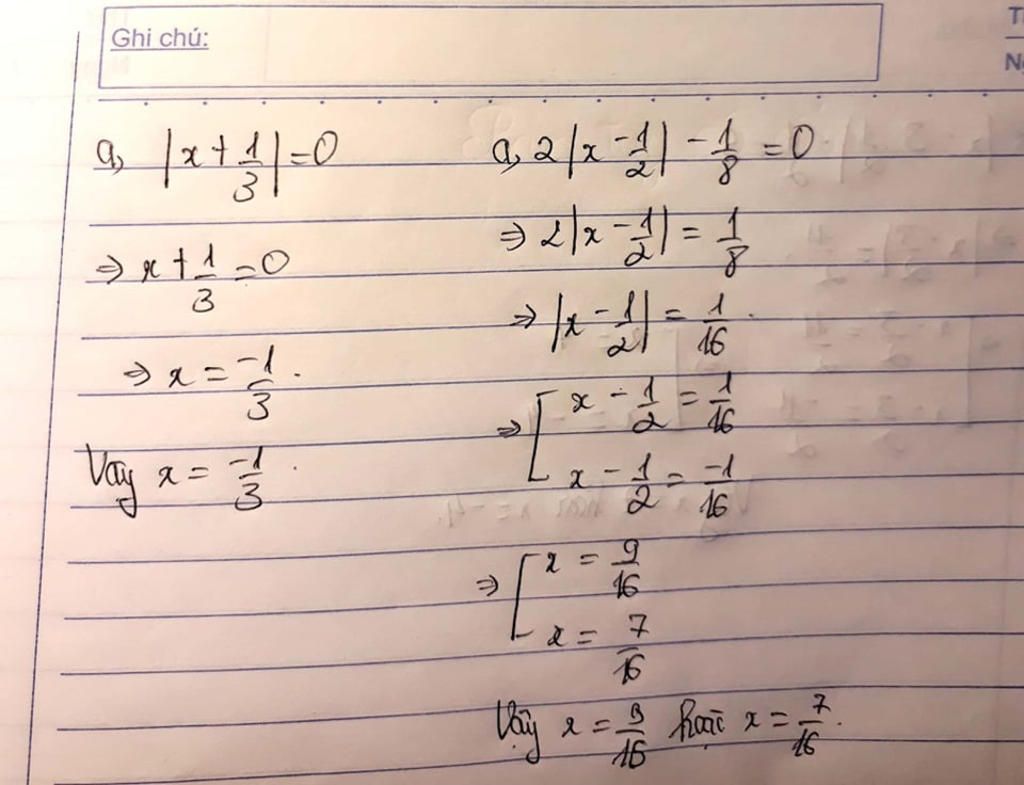 Ghi chú:
a, |x + 1/3| = 0
⇒ x + 1/3 = 0
⇒ x = -1/3.
Vậy x = -1/3.
a, 2|x - 1/2| - 1/8 = 0
⇒ 2|x - 1/2| = 1/8
⇒ |x - 1/2| = 1/16.
⇒ [ x - 1/2 = 1/16
x - 1/2 = -1/16
⇒ [ x = 9/16
x = 7/16
Vậy x = 9/16 hoặc x = 7/16.